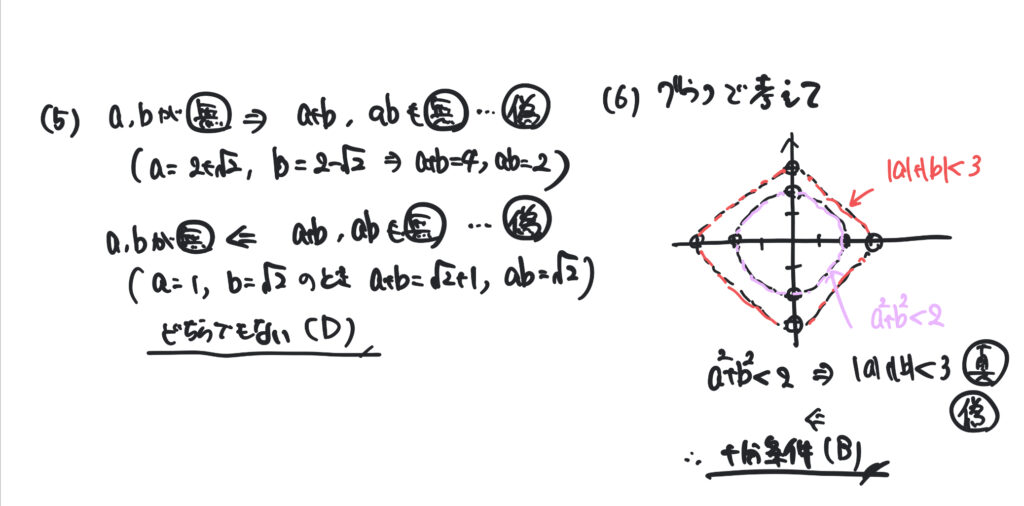 (5) a,bが無⇒ a+b, abも無…偽
(a=2+√2, b=2-√2 ⇒ a+b=4, ab=2)
a,bが無 ⇐ a+b, abも無 …偽
(a=1, b=√2のとき a+b=√2+1, ab=√2)
どちらでもない(D)
(6) グラフで考えて
|a|+|b|<3
a²+b²<2
a²+b²<2 ⇒ |a|+|b|<3 真
⇐ 偽
∴ 十分条件(B)